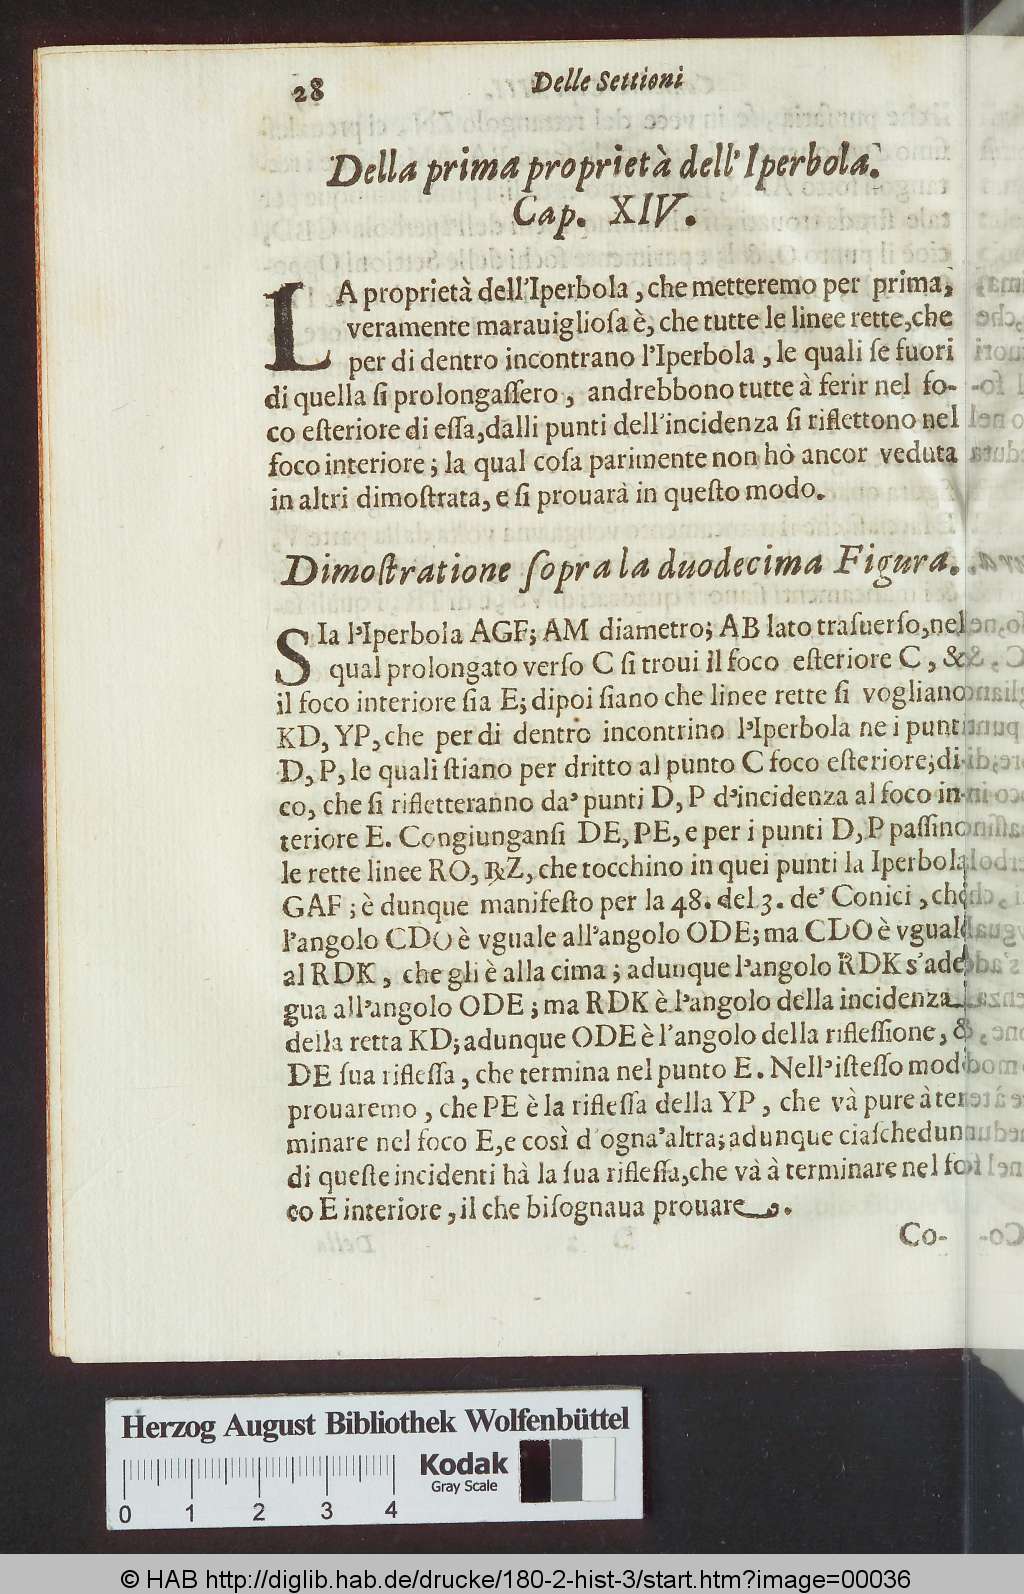 28
Delle Settioni
Della prima proprietà dell'Iperbola.
Cap. XIV.
LA proprietà dell'Iperbola, che metteremo per prima,
veramente marauiglioſa è, che tutte le linee rette, che
per di dentro incontrano l'Iperbola, le quali ſe fuori
di quella ſi prolongaſſero, andrebbono tutte à ferir nel fo-
co eſteriore di eſſa, dalli punti dell'incidenza ſi riflettono nel
foco interiore; la qual coſa parimente non hò ancor veduta
in altri dimoſtrata, e ſi prouarà in queſto modo.
Dimoſtratione ſopra la duodecima Figura.
SIa l'Iperbola AGF; AM diametro; AB lato trasuerſo, nel
qual prolongato verſo C ſi troui il foco eſteriore C, &
il foco interiore ſia E; dipoi ſiano che linee rette ſi vogliano
KD, YP, che per di dentro incontrino l'Iperbola ne i punti
D, P, le quali ſtiano per dritto al punto C foco eſteriore; di-
co, che ſi rifletteranno da' punti D, P d'incidenza al foco in-
teriore E. Congiunganſi DE, PE, e per i punti D, P paſſino
le rette linee RO, ꝶZ, che tocchino in quei punti la Iperbola
GAF; è dunque manifeſto per la 48. del 3. de' Conici, che
l'angolo CDO è vguale all'angolo ODE; ma CDO è vguale
al RDK, che gli è alla cima; adunque l'angolo RDK s'ade
gua all'angolo ODE; ma RDK è l'angolo della incidenza
della retta KD; adunque ODE è l'angolo della rifleſſione, &
DE ſua rifleſſa, che termina nel punto E. Nell'iſteſſo modo
prouaremo, che PE è la rifleſſa della YP, che và pure à ter
minare nel foco E, e così d'ogna'altra; adunque ciaſcheduna
di queſte incidenti hà la ſua rifleſſa, che và à terminare nel fo
co E interiore, il che biſognaua prouare.
Co-
Herzog August Bibliothek Wolfenbüttel
Kodak
Gray Scale
0 1 2 3 4
© HAB http://diglib.hab.de/drucke/180-2-hist-3/start.htm?image=00036